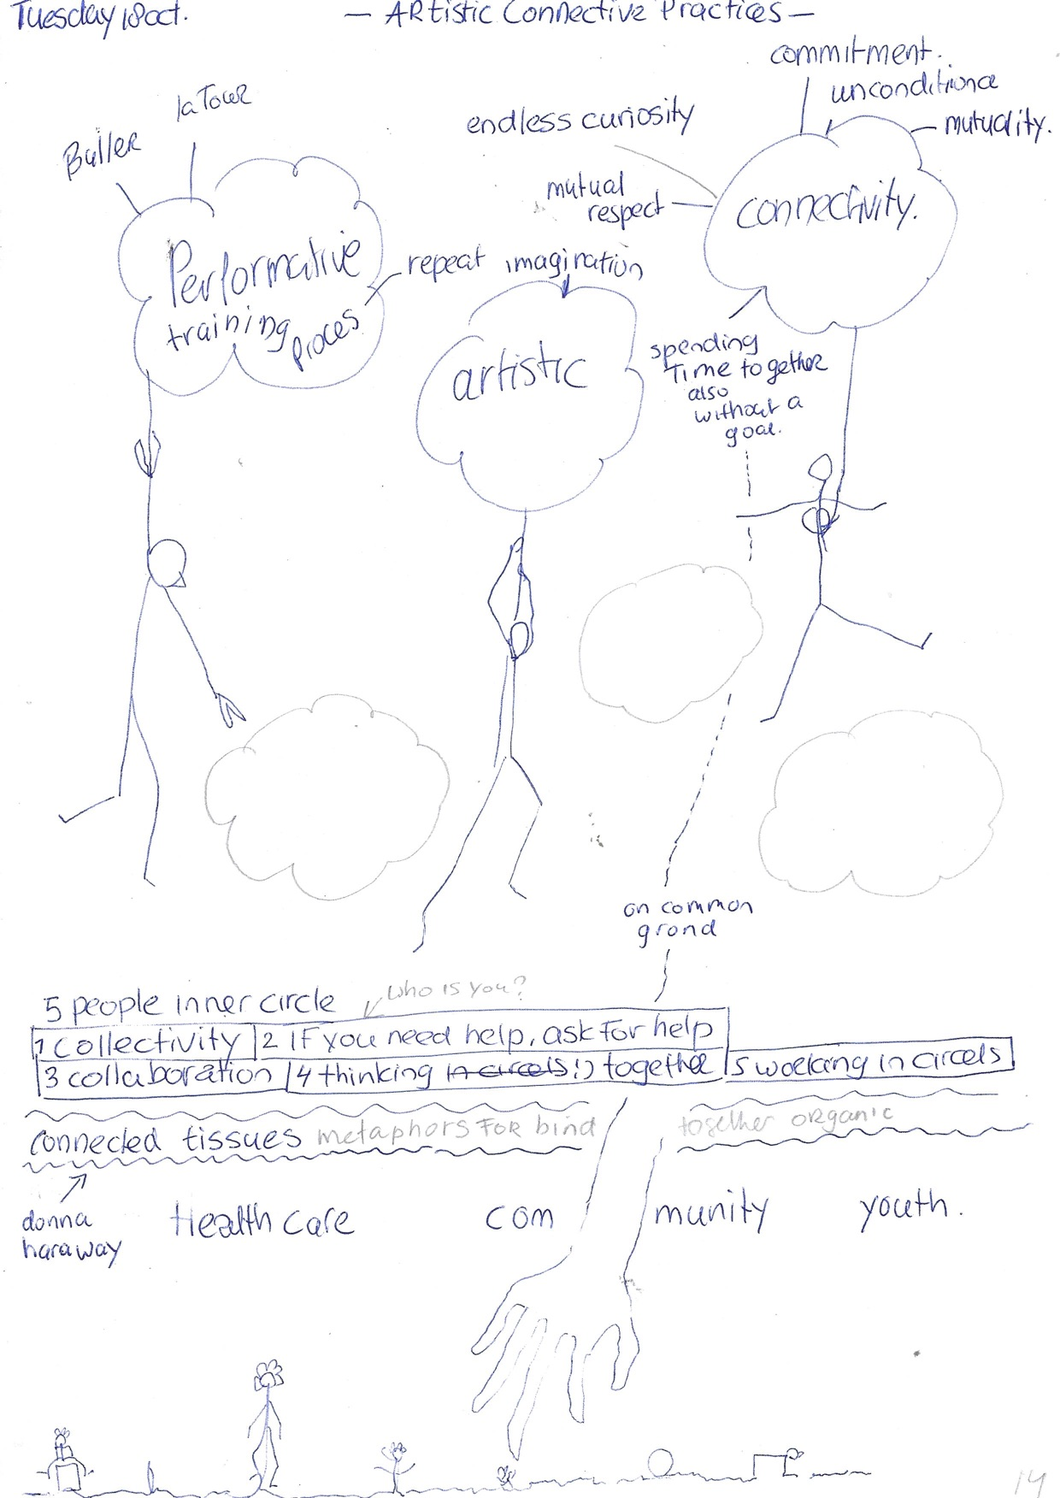 Tuesday 18 oct.
— ARtistic Connective Practices —
commitment.
unconditionce
mutuality.
endless curiosity
mutual
respect
connectivity.
la Tour
Butler
Performative
training
proces
repeat
imagination
artistic
spending
Time together
also
without a
goal.
on common
grond
5 people inner circle
who is you?
1 collectivity 2 if you need help, ask for help
3 collaboration 4 thinking in circels !) together 5 working in circels
connected tissues metaphors for bind together organic
donna
haraway
Health care community youth.
14